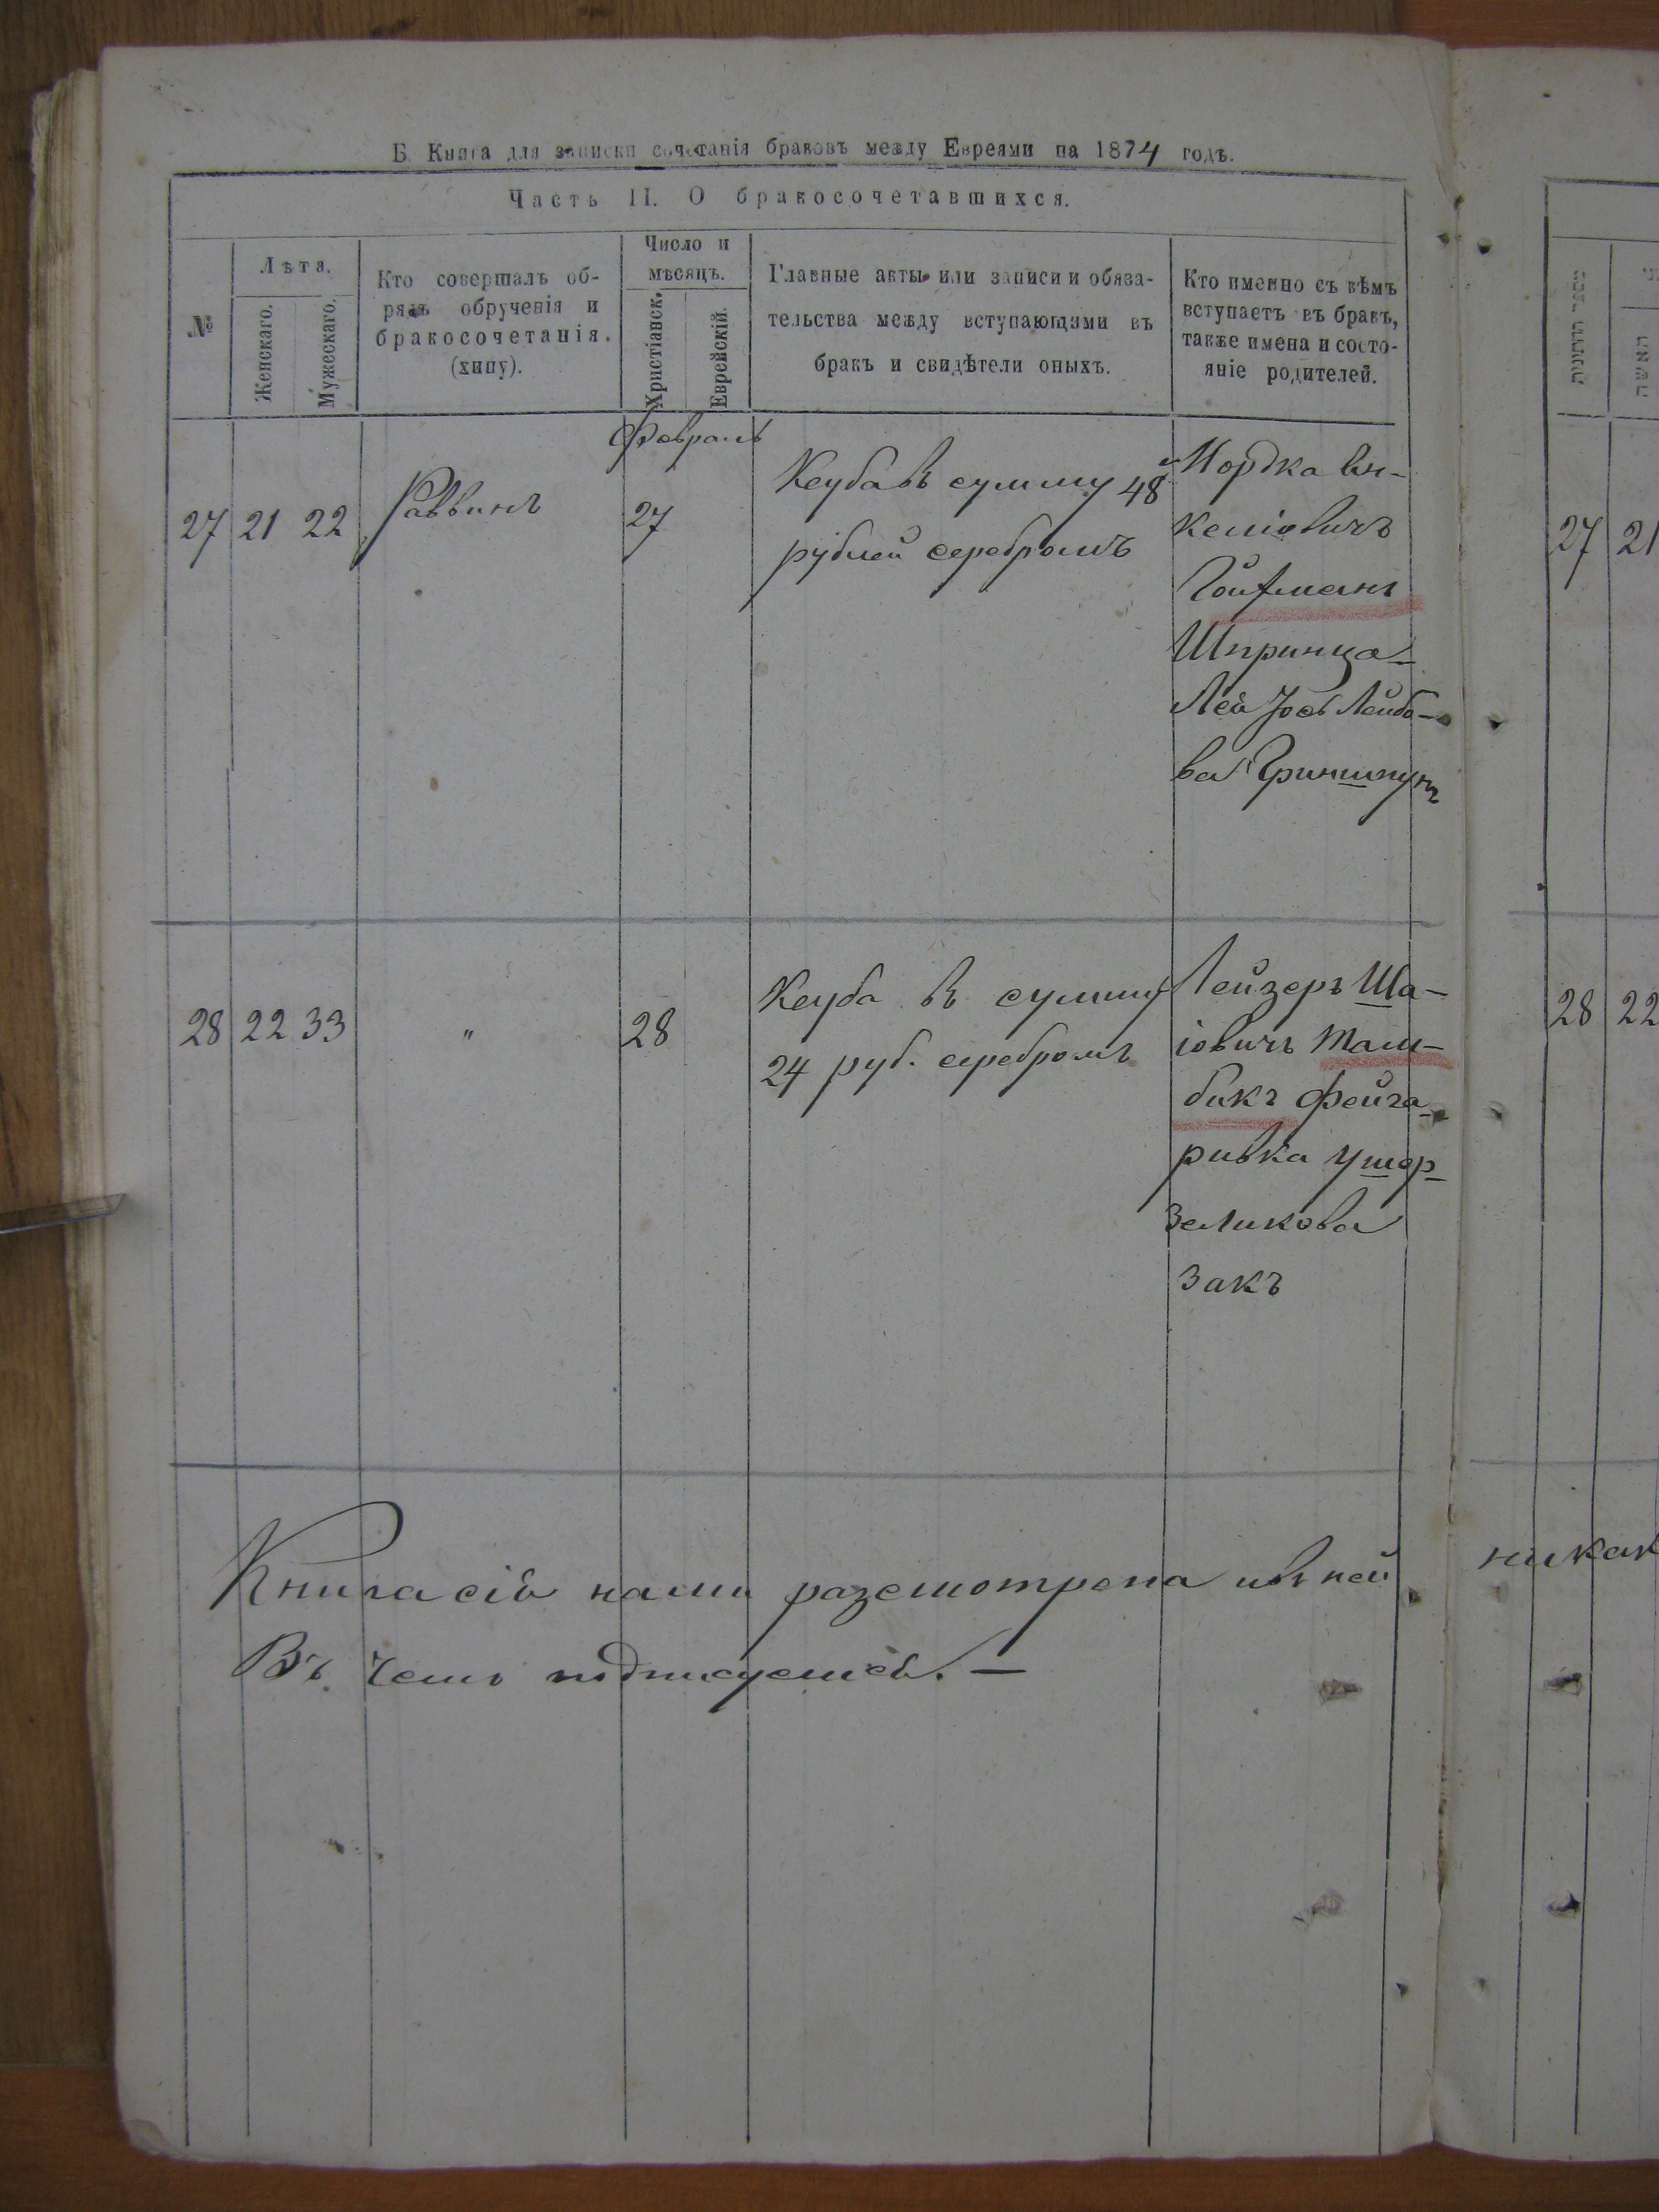 Б. Книга для записки сочетанія браковъ между Евреями на 1874 годъ.
Часть II. О бракосочетавшихся.
№
Лѣта.
Женскаго.
Мужескаго.
Кто совершалъ об-
рядъ обрученія и
бракосочетанія.
(хупу).
Число и
мѣсяцъ.
Христіанск.
Еврейскій.
Главные акты или записи и обяза-
тельства между вступающими въ
бракъ и свидѣтели оныхъ.
Кто именно съ кѣмъ
вступаетъ въ бракъ,
также имена и состо-
яніе родителей.
Февраль
27 21 22 Раввинъ 27
Ксуба въ сумму 48
рублей серебромъ
Мордка
Гойфманъ
Шпринца-
Лея Іос Лейбо-
ва Гриншпунъ
28 22 33 " 28
Ксуба въ сумму
24 руб. серебромъ
Лейзеръ Ша-
іовичъ Там-
бикъ Фейга-
ривка Ушер-
Зеликова
Закъ
Книга сія нами разсмотрена и въ ней
Въ чемъ подписуемся. —
27 21
28 22
никак